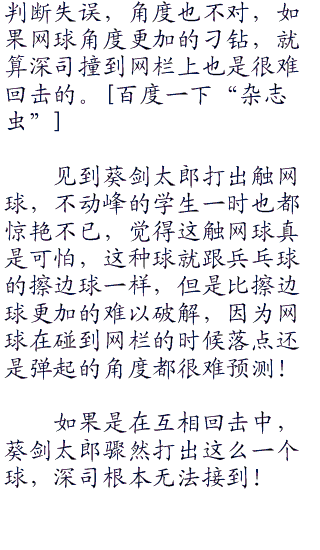 判断失误，角度也不对，如
果网球角度更加的刁钻，就
算深司撞到网栏上也是很难
回击的。[百度一下“杂志
虫”]
见到葵剑太郎打出触网
球，不动峰的学生一时也都
惊艳不已，觉得这触网球真
是可怕，这种球就跟乒乓球
的擦边球一样，但是比擦边
球更加的难以破解，因为网
球在碰到网栏的时候落点还
是弹起的角度都很难预测！
如果是在互相回击中，
葵剑太郎骤然打出这么一个
球，深司根本无法接到！